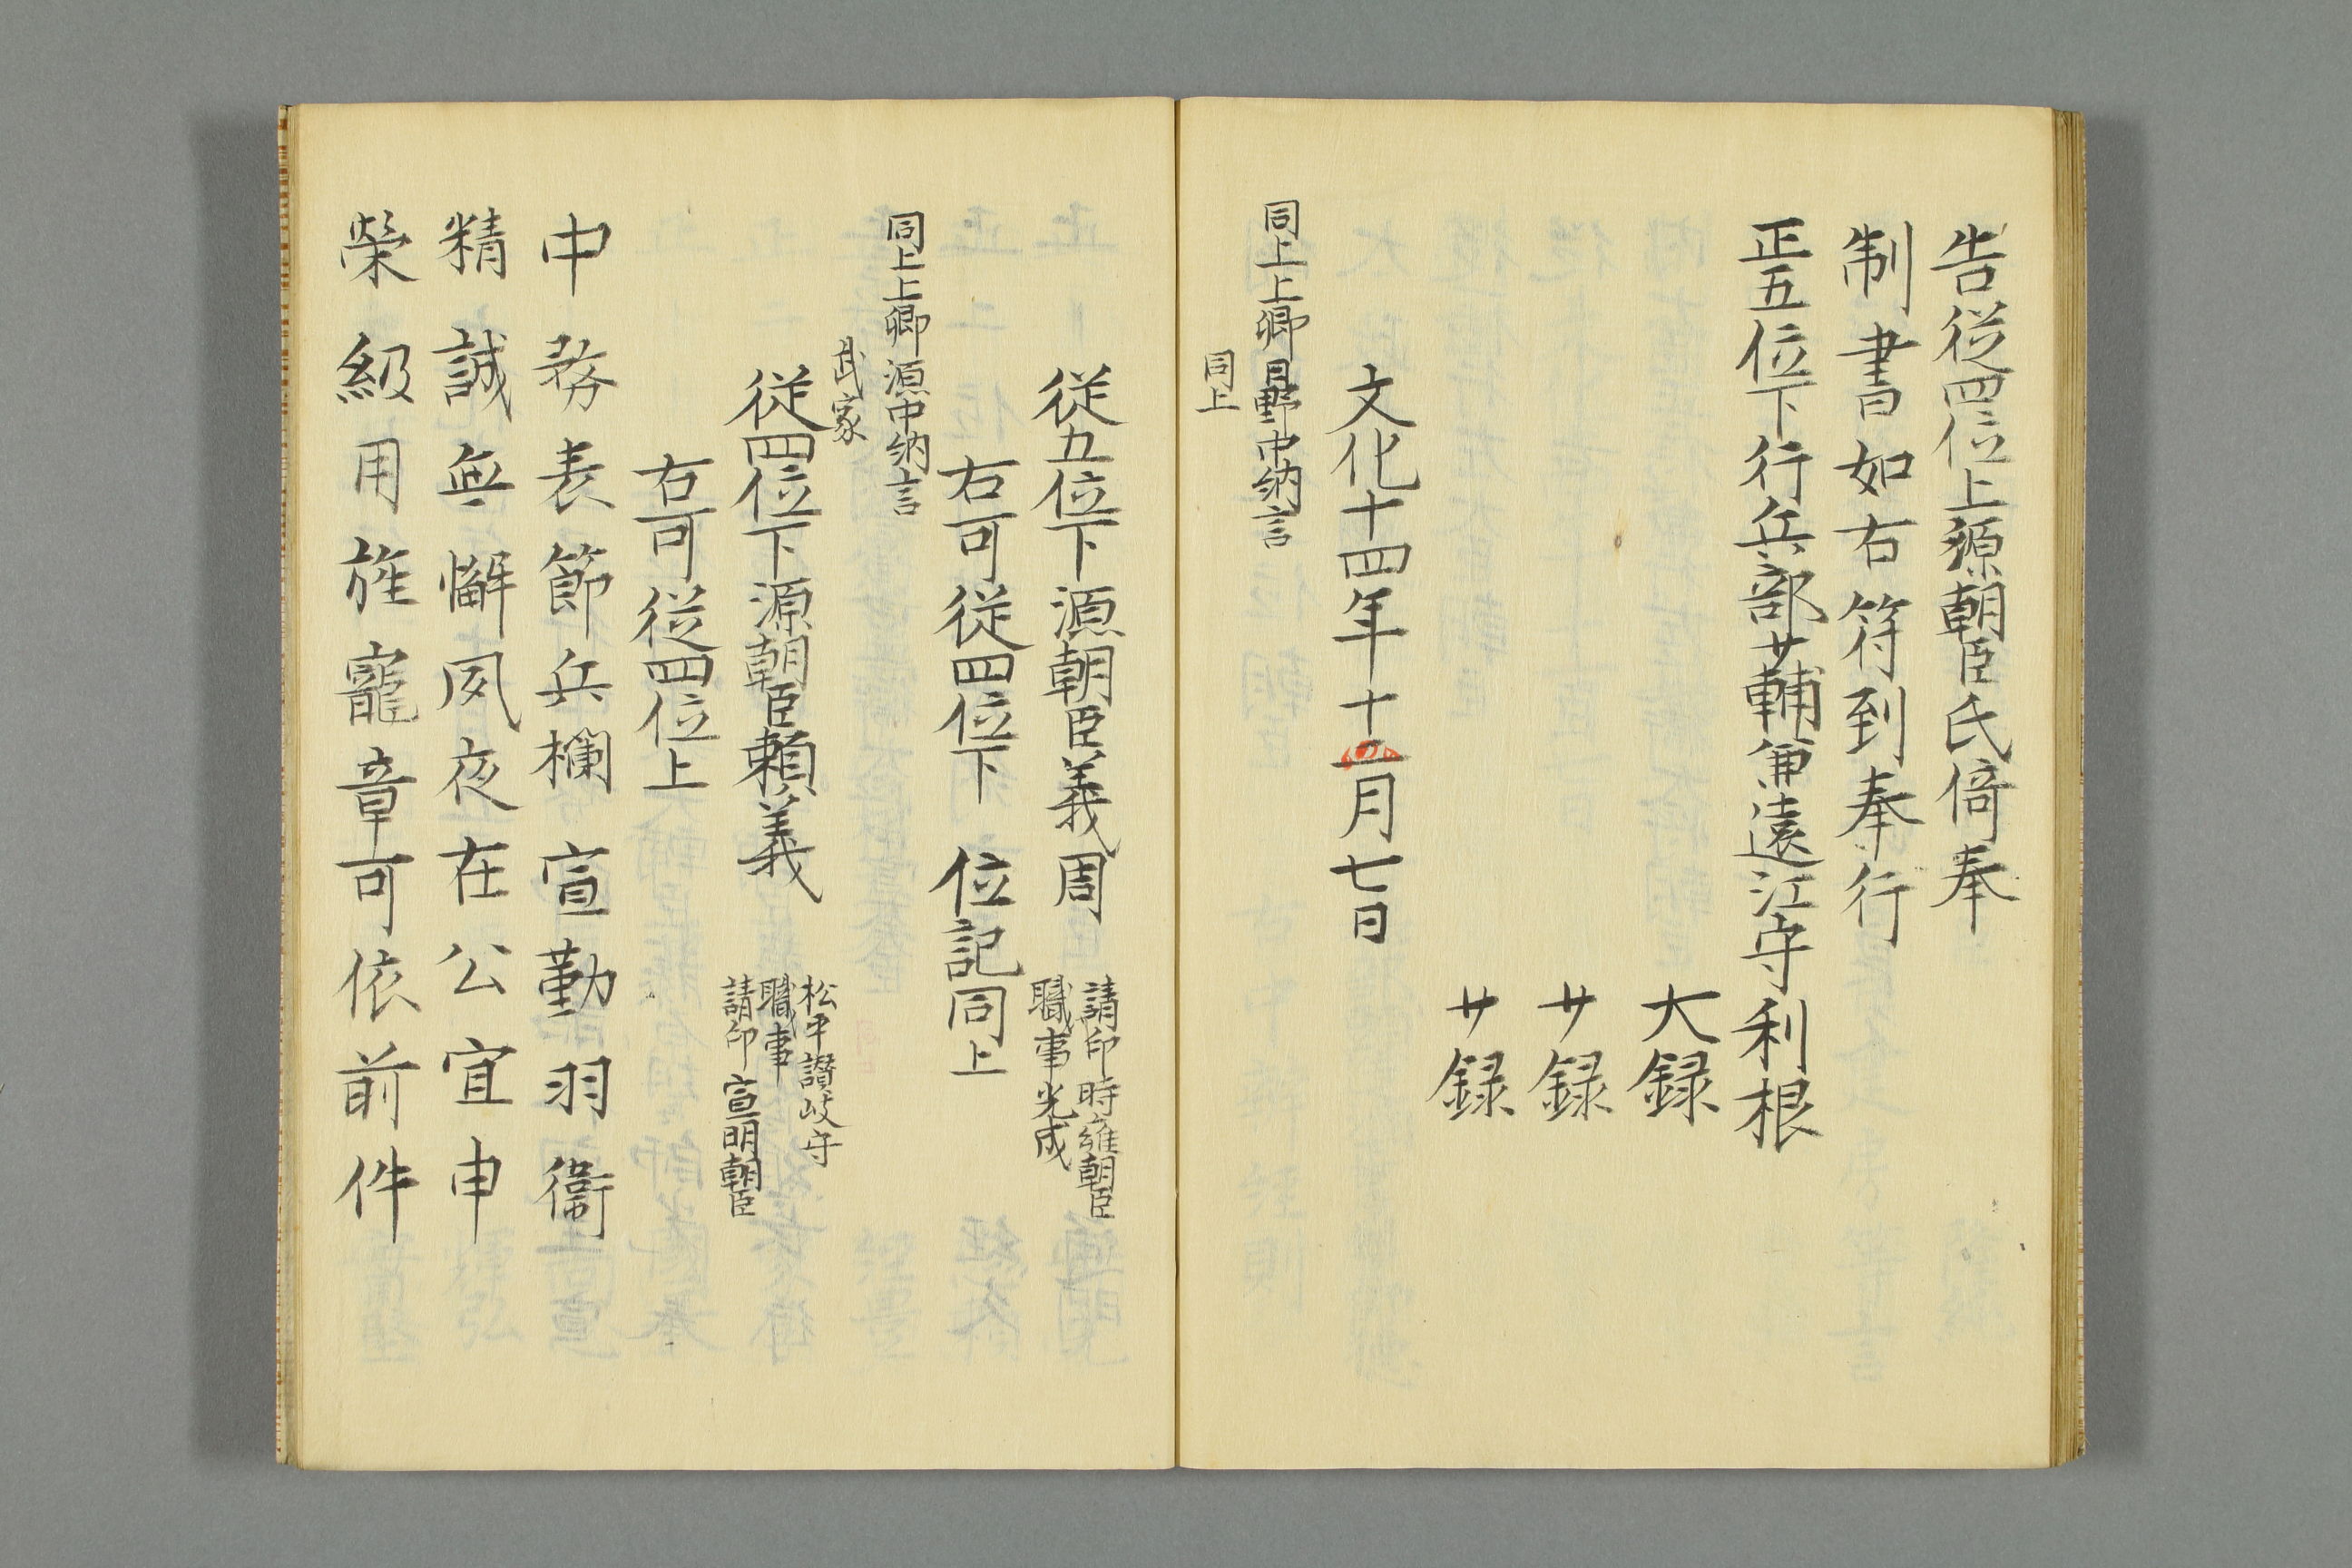 告従四位上源朝臣氏倚奉
制書如右符到奉行
正五位下行兵部少輔兼遠江守利根
大録
少録
少録
文化十四年十二月七日
同上上卿日野中納言
同上
従五位下源朝臣義周
請印時雍朝臣
職事光成
右可従四位下 位記同上
同上上卿源中納言
武家
従四位下源朝臣頼義
松平讃岐守
職事
請印宣明朝臣
右可従四位上
中務表節兵欄宣勤羽衞
精誠無懈夙夜在公宜申
榮級用旌寵章可依前件